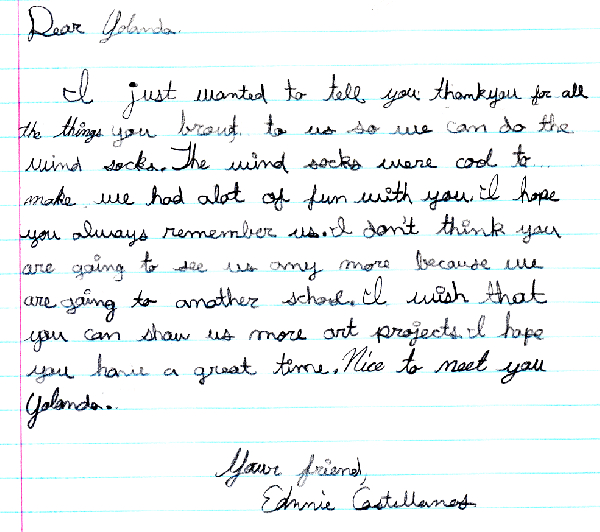 Dear Yolanda.
I just wanted to tell you thankyou for all
the things you brout to us so we can do the
wind socks. The wind socks were cool to
make we had alot of fun with you. I hope
you always remember us. I don't think you
are going to see us any more because we
are going to another school. I wish that
you can show us more art projects. I hope
you have a great time. Nice to meet you
Yolanda.
Your friend,
Ednnie Castellanos